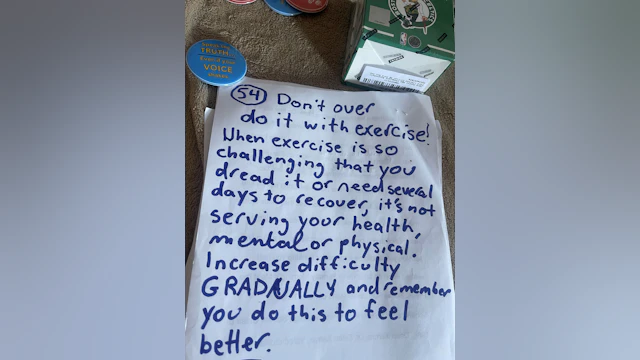 TRUTH
VOICE
54 Don't over
do it with exercise!
When exercise is so
challenging that you
dread it or need several
days to recover, it's not
serving your health,
mental or physical.
Increase difficulty
GRADUALLY and remember
you do this to feel
better.